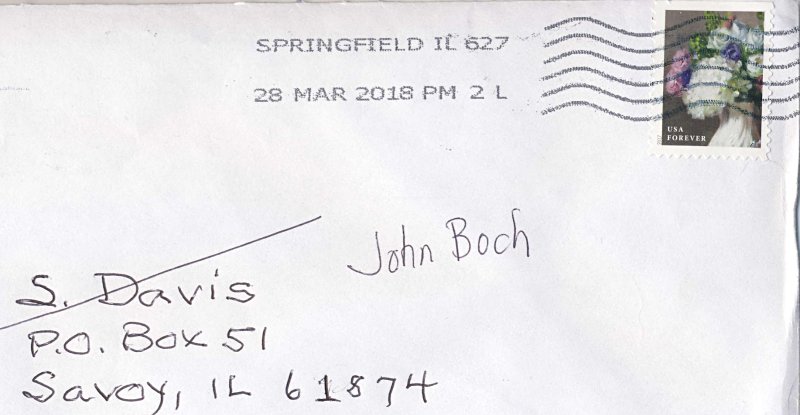 SPRINGFIELD IL 627
28 MAR 2018 PM 2 L
USA
FOREVER
John Boch
S. Davis
P.O. Box 51
Savoy, IL 61874